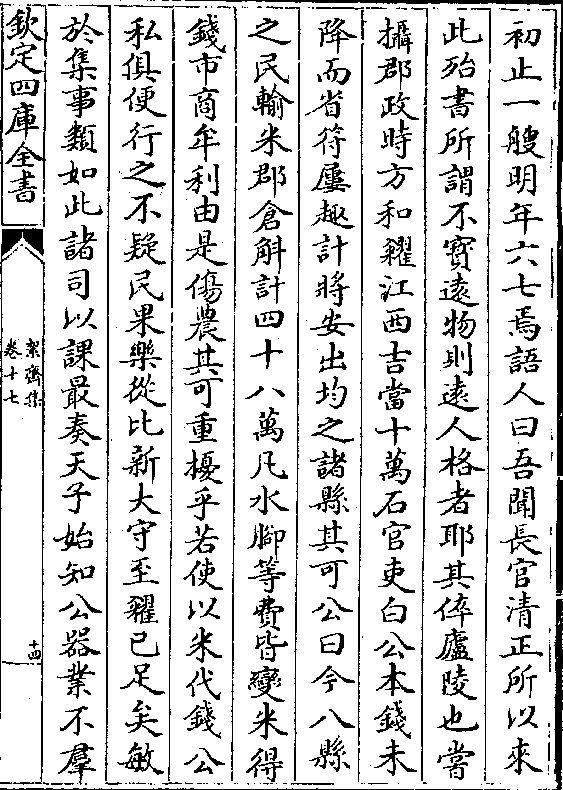 初止一艘明年六七焉語人曰吾聞長官清正所以來
此殆書所謂不寳遠物則遠人格者耶其倅廬陵也嘗
攝郡政時方和糴江西吉當十萬石官吏白公本錢未
降而省符屢趣計將安出均之諸縣其可公曰今八縣
之民輸米郡倉斛計四十八萬凡水脚等費皆變米得
錢市商牟利由是傷農其可重擾乎若使以米代錢公
私俱便行之不疑民果樂從比新大守至糴已足矣敏
於集事類如此諸司以課最奏天子始知公器業不羣
欽定四庫全書
絜齋集
卷十七
十四